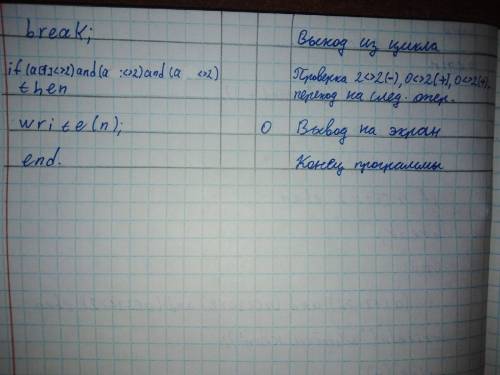 break; Выход из цикла
if (a[1]<>2)and(a :<>2)and(a <>2) Проверка 2<>2(-), 0<>2(+), 0<>2(+),
then переход на след. опер.
write(n); 0 Вывод на экран
end. Конец программы